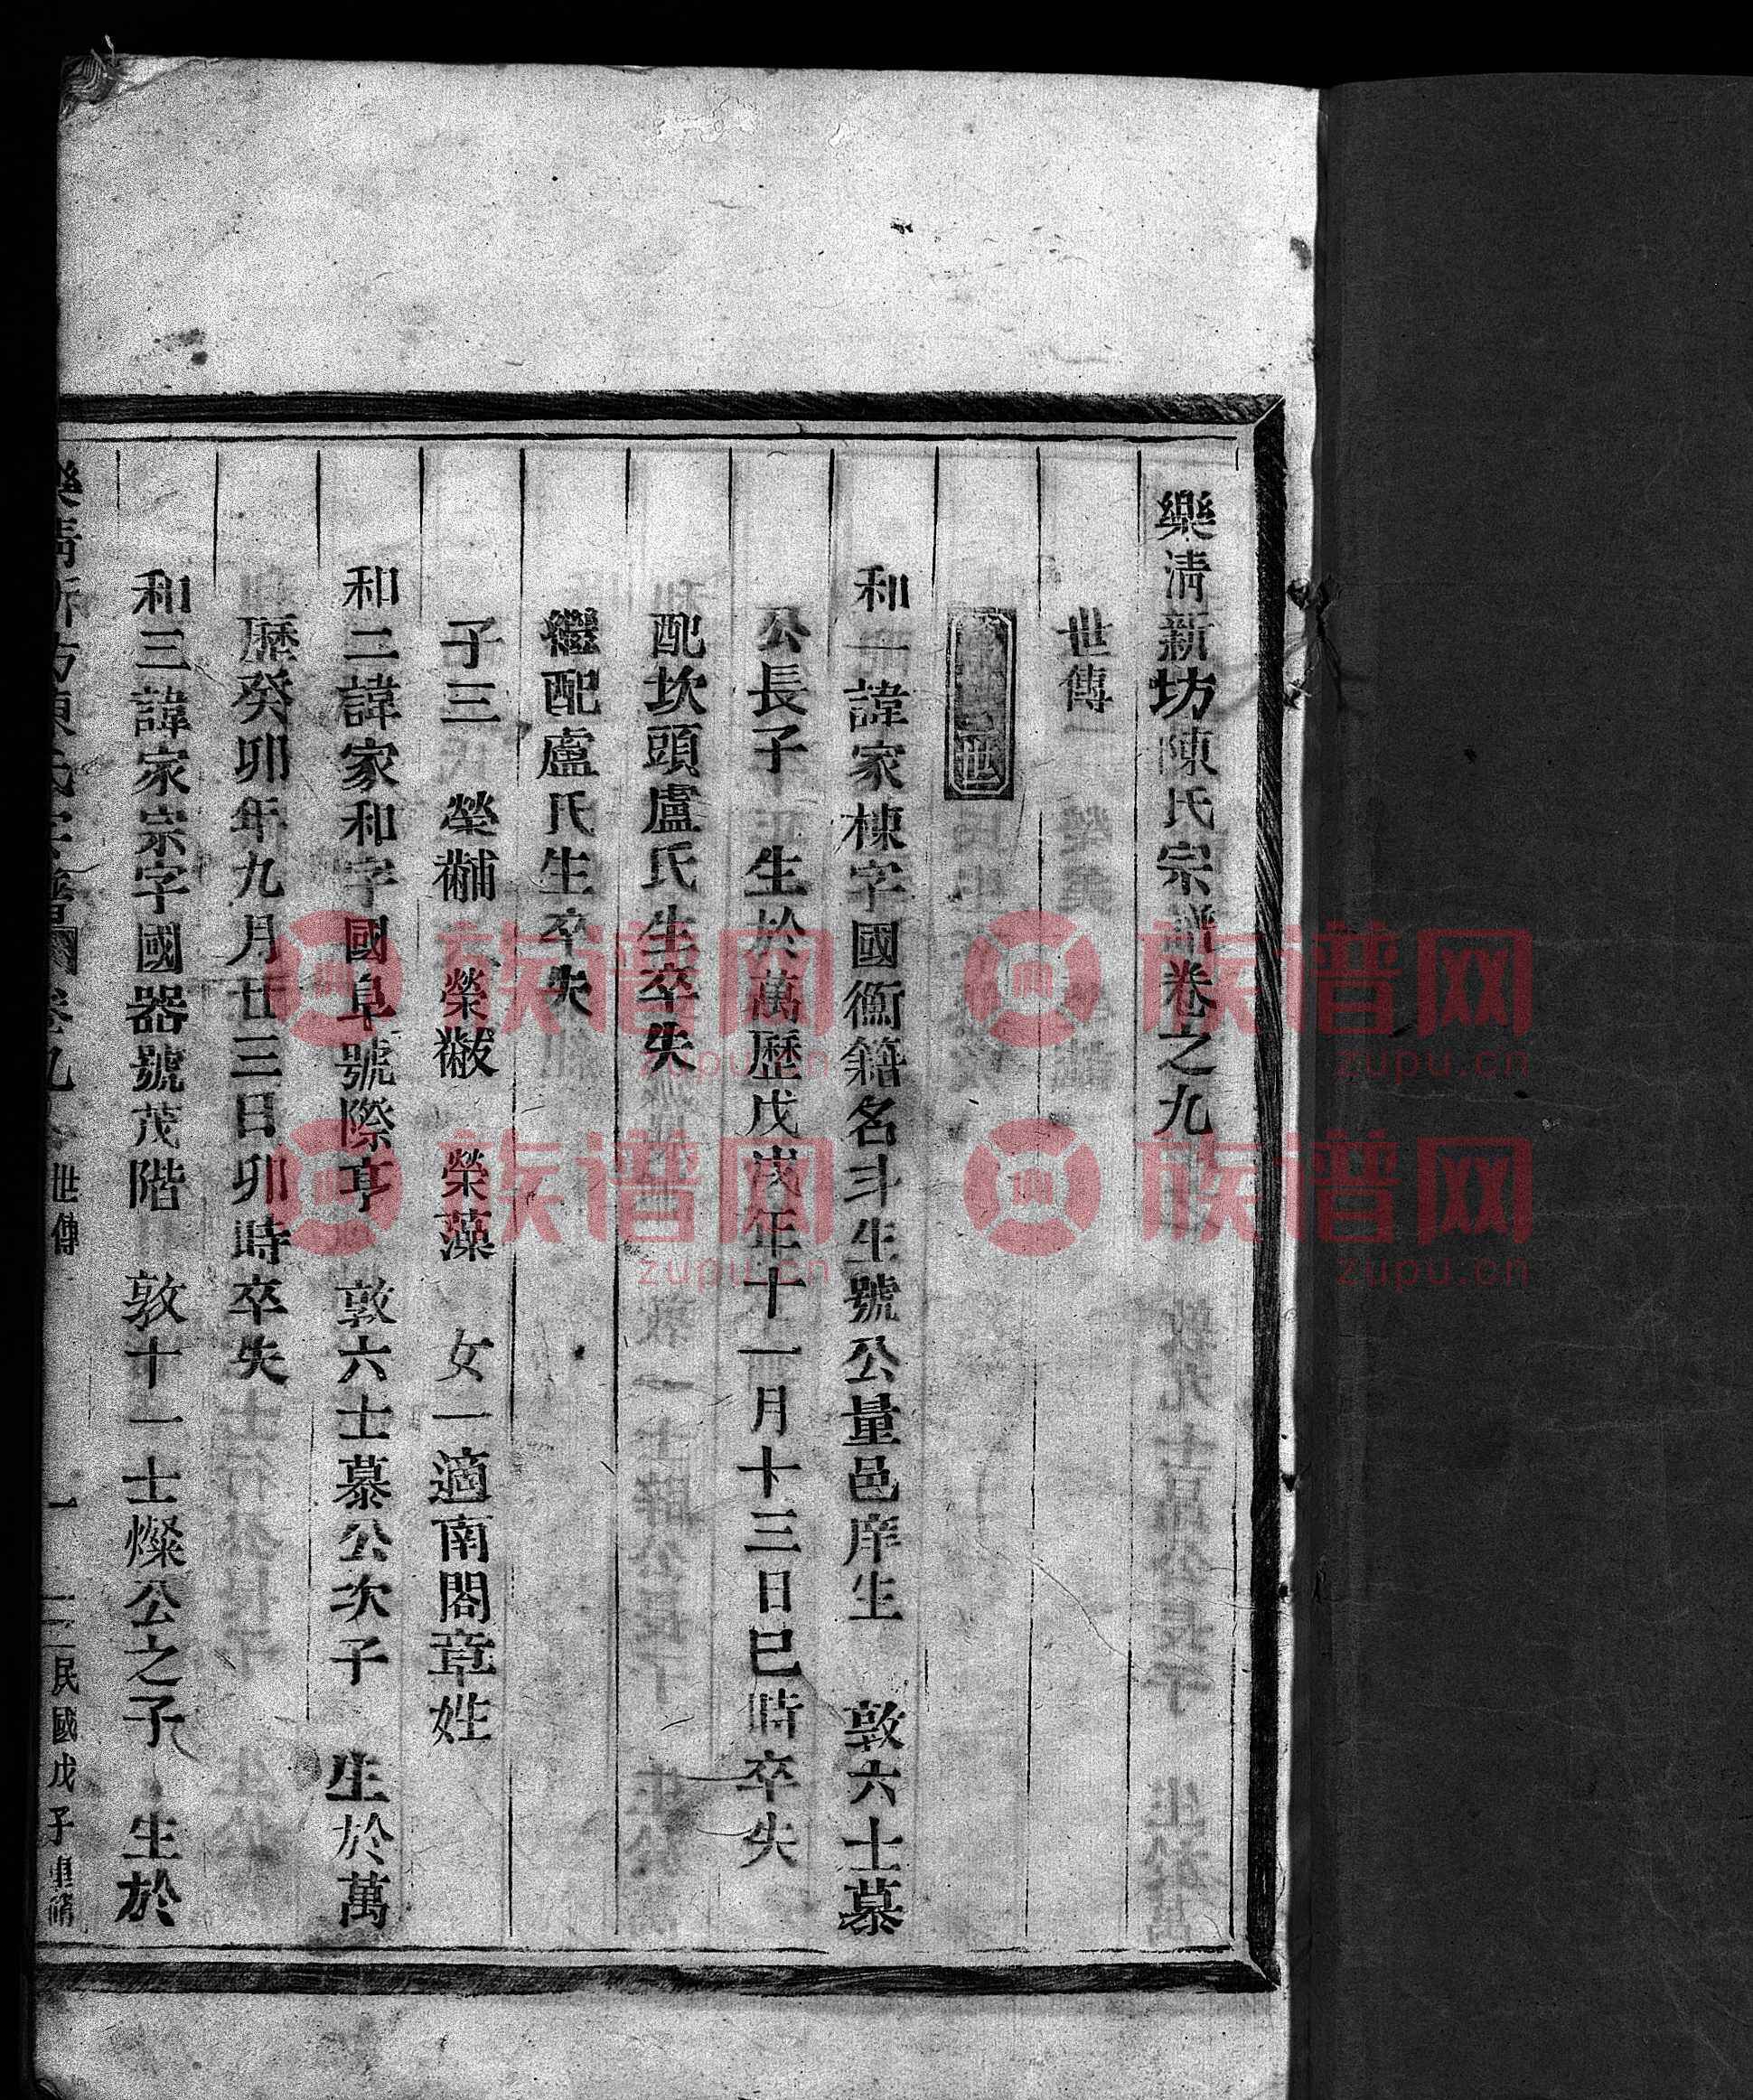 樂清新坊陳氏宗譜卷之九
世傳一
世
和一諱家棟字國衟籍名斗生號公量邑庠生　敦六士慕
公長子　生於萬歷戊戌年十一月十三日巳時卒失
配坎頭盧氏生卒失
繼配盧氏生卒失
子三　榮黼　榮黻　榮藻　女一適南閣章姓
和二諱家和字國阜號際亨　敦六士慕公次子　生於萬
歷癸卯年九月廿三日卯時卒失
和三諱家宗字國器號茂階　敦十一士燦公之子　生於
樂清新坊陳氏宗譜　卷九　世傳　一　民國戊子重脩
族谱网 zupu.cn
族谱网 zupu.cn
族谱网 zupu.cn
族谱网 zupu.cn